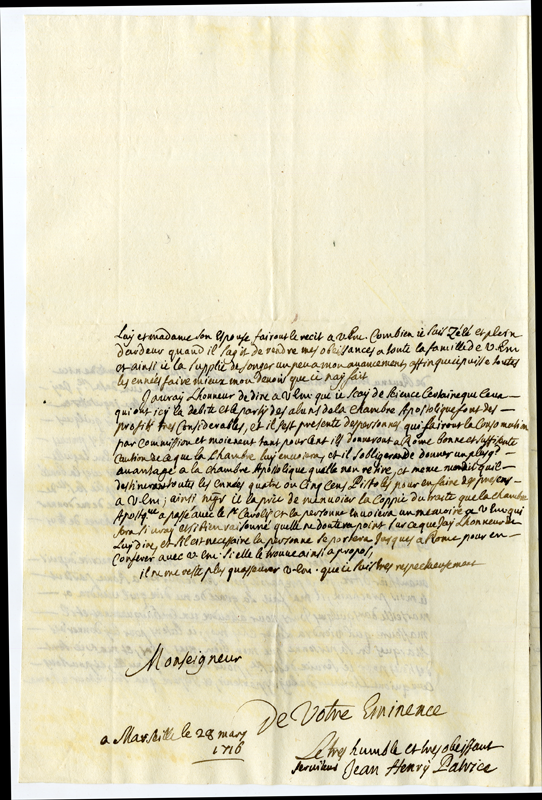 Luy et madame son Espouse fairont le recit a V Em. Combien ie suis Zélé et plein
d'ardeur quand il sagit de rendre mes obeissances a toute la famille de V Em
et ainsi ie la supplie de songer un peu a mon avancement, affin que ie puisse toutes
les années faire mieux mon devoir que ie nay fait
Jauray Lhonneur de dire a V Em que ie scay de science Certaine que Ceux
qui ont icy le debite et le party des aluns de la Chambre Apostolique font des
profits tres Considerables, et il sest presenté des personnes qui fairont la Consomation
par Commission et moienent tant pour Cent ils donneront a Rome bonne et suffisante
Caution de ce que la Chambre luy envoiera, et il sobligera de donner un
avantage a la chambre Apostolique quelle nen retire, et meme mondit quil
destinera toutes les années quatre ou Cinq Cens Pistoles pour en faire des presens
a V Em; ainsi ie la prie de menvoier la Coppie du traité que la chambre
Apostque a passé avec le Sr Caroli et la personne envoiera un memoire a V Em qui
sera si vray et si bien raisonné quelle ne doutera point sur ce que Jay Lhonneur de
Luy dire, et sil est necessaire la personne se portera Jusques a Rome pour en
Conferer avec V Em. si elle le trouve ainsi a propos,
il ne me reste plus quasseurer V Em. que ie suis tres respectueusement
Monseigneur
De Votre Eminence
a Marseille le 28 mars
1716
Le tres humble et tres obeissant
serviteur Jean Henry Patrice